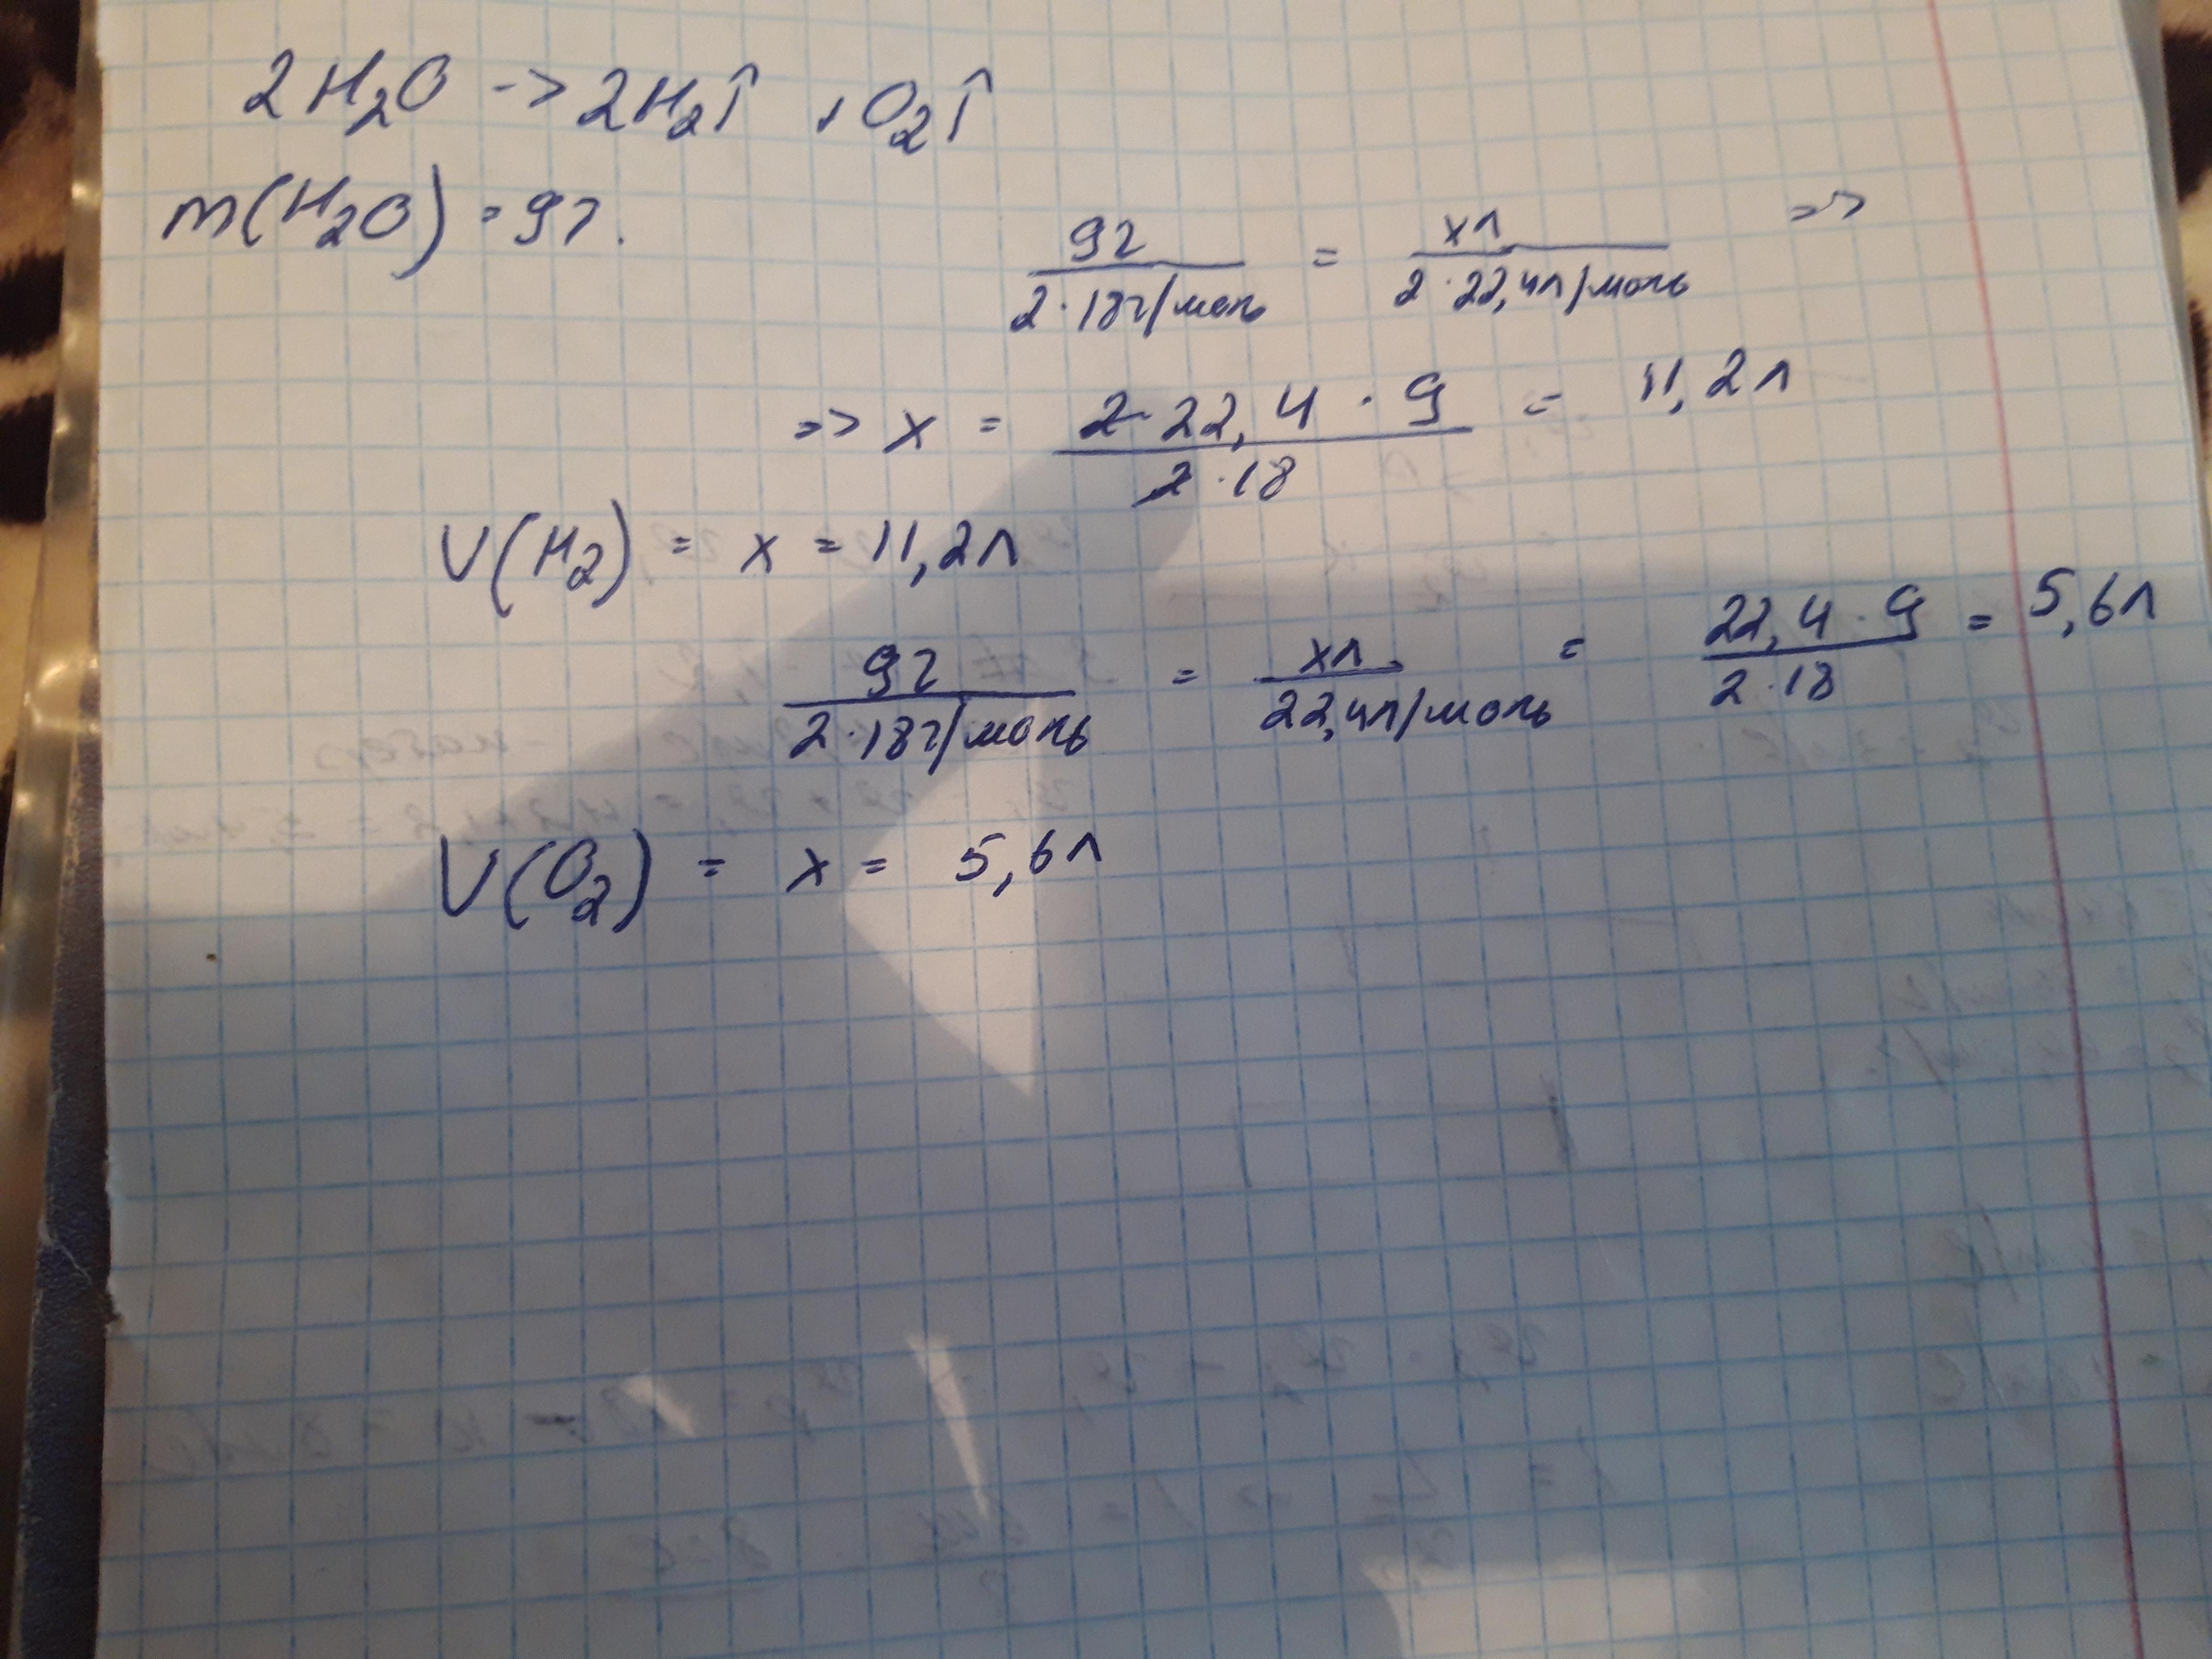 2H₂O -> 2H₂↑ + O₂↑
m(H₂O) = 9г.
9г / 2·18г/моль = xл / 2·22,4л/моль =>
=> x = 2·22,4·9 / 2·18 = 11,2л
V(H₂) = x = 11,2л
9г / 2·18г/моль = xл / 22,4л/моль = 22,4·9 / 2·18 = 5,6л
V(O₂) = x = 5,6л